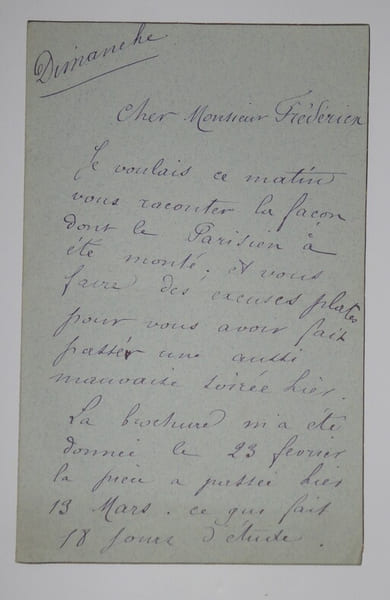 Dimanche
Cher Monsieur Frédérien
Je voulais ce matin
vous raconter la façon
dont le Parisien à
été monté. et vous
faire des excuses plates
pour vous avoir fait
passér une aussi
mauvaise soirée hier.
La brochure m'a été
donnée le 23 fevrier
la pièce a passée hier
13 Mars. ce qui fait
18 Jours d'étude.